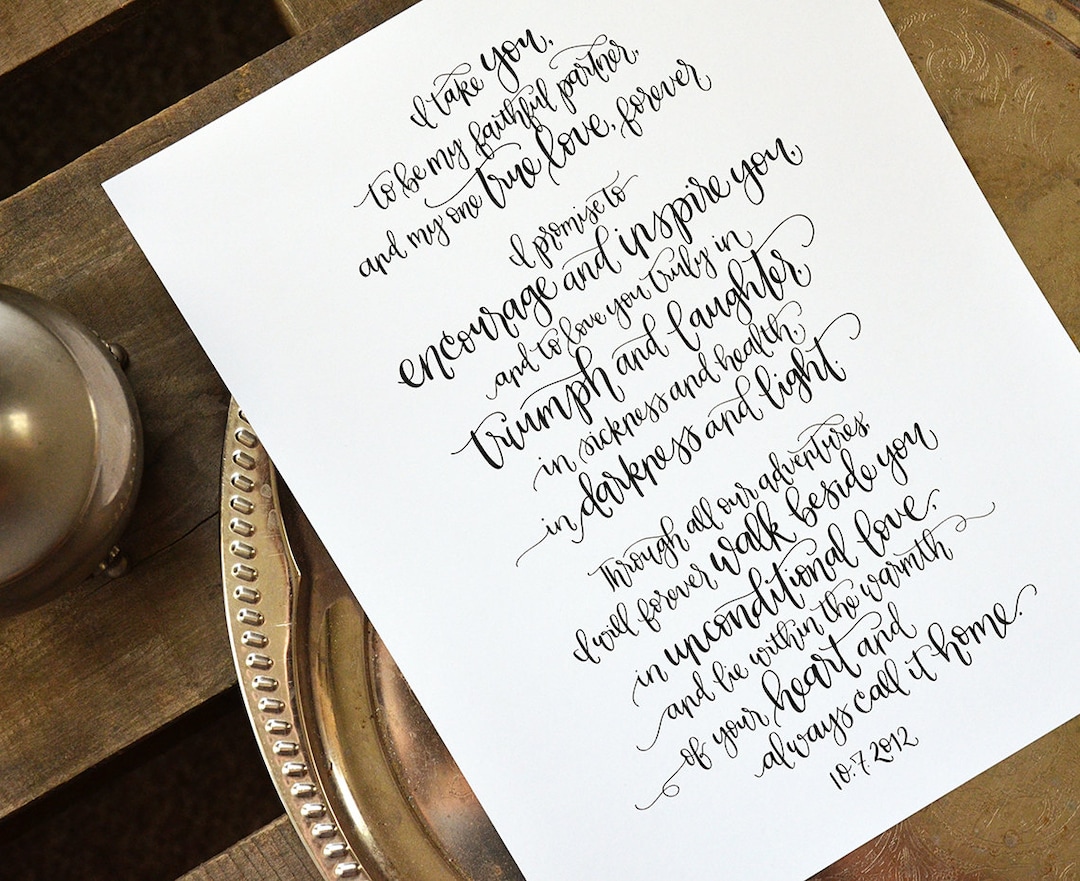 I take you,
to be my faithful partner,
and my one true love, forever
I promise to
encourage and inspire you,
and to love you truly in
triumph and laughter,
in sickness and health,
in darkness and light.
Through all our adventures,
I will forever walk beside you
in unconditional love,
and lie within the warmth
of your heart and
always call it home.
10.7.2012